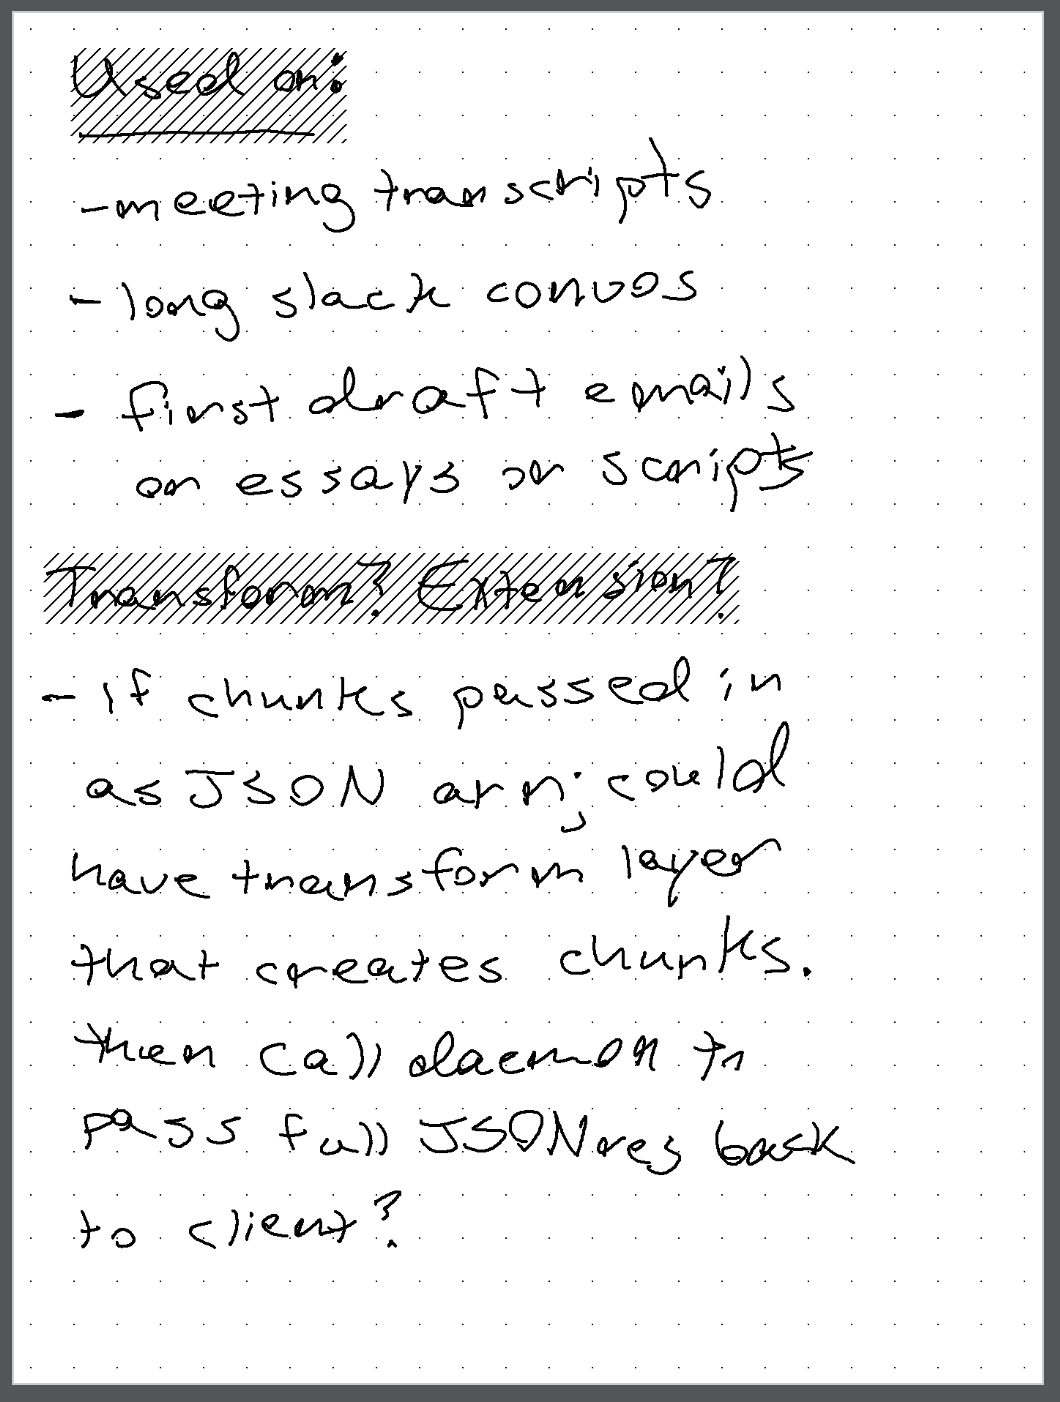 Used on:
- meeting transcripts
- long slack convos
- first draft emails
or essays or scripts
Transform? Extension?
- if chunks passed in
as JSON arr; could
have transform layer
that creates chunks.
then call daemon to
pass full JSON res back
to client?